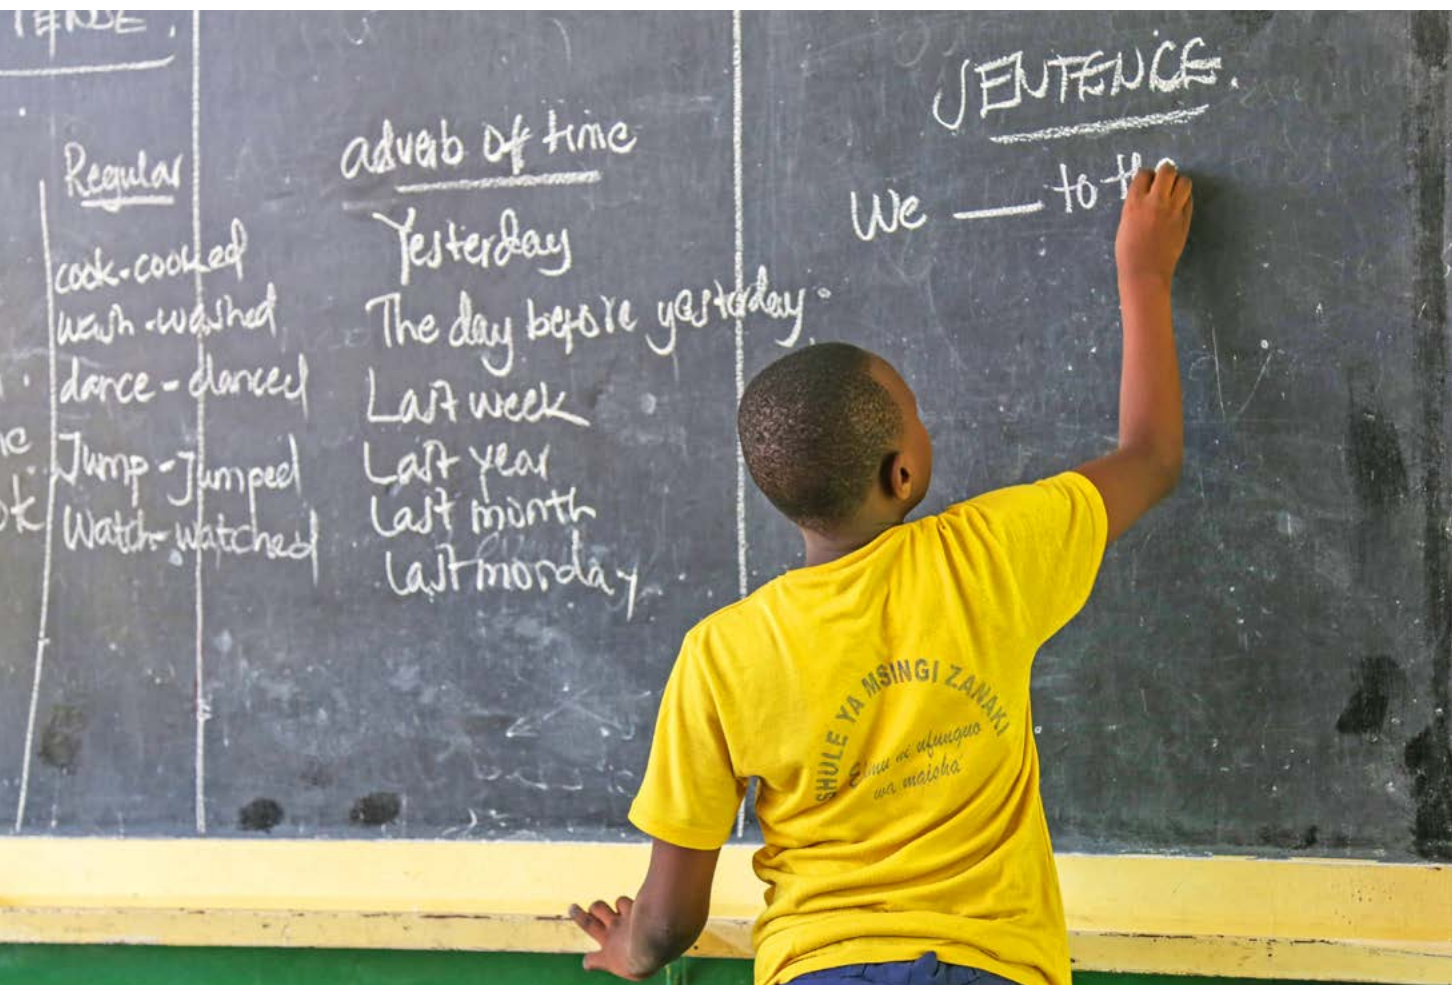 TENSE.
Regular
cook-cooked
wash-washed
dance-danced
Jump-Jumped
Watch-watched
adverb of time
Yesterday
The day before yesterday.
Last week
Last year
Last month
Last monday
SENTENCE.
We ___ to the
SHULE YA MSINGI ZANAKI
Elimu ni ufunguo
wa maisha